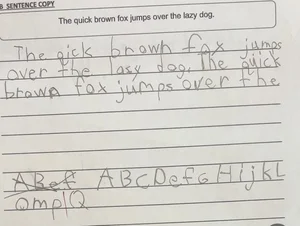 B. SENTENCE COPY
The quick brown fox jumps over the lazy dog.
The qick brown fox jumps
over the lasy dog. The quick
brown fox jumps over the
ABef ABCDefGHijkL
OmplQ